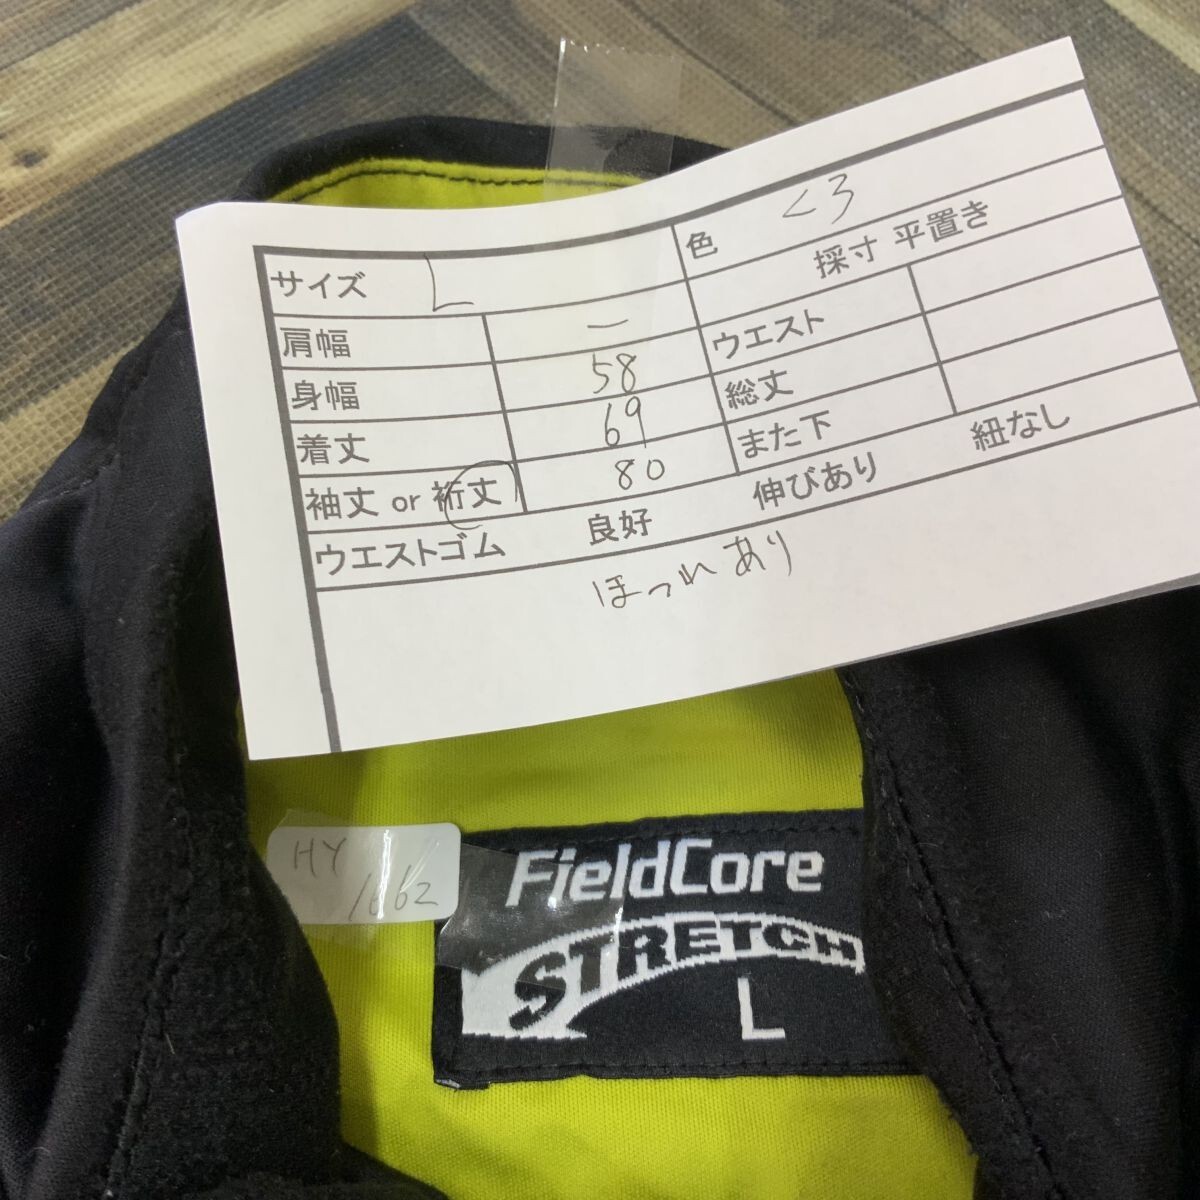 サイズ L 色 くろ
採寸 平置き
肩幅 ー ウエスト
身幅 58 総丈
着丈 69 また下
袖丈 or 裄丈 80
ウエストゴム 良好 伸びあり 紐なし
ほつれあり
HY
1662
FieldCore
STRETCH
L